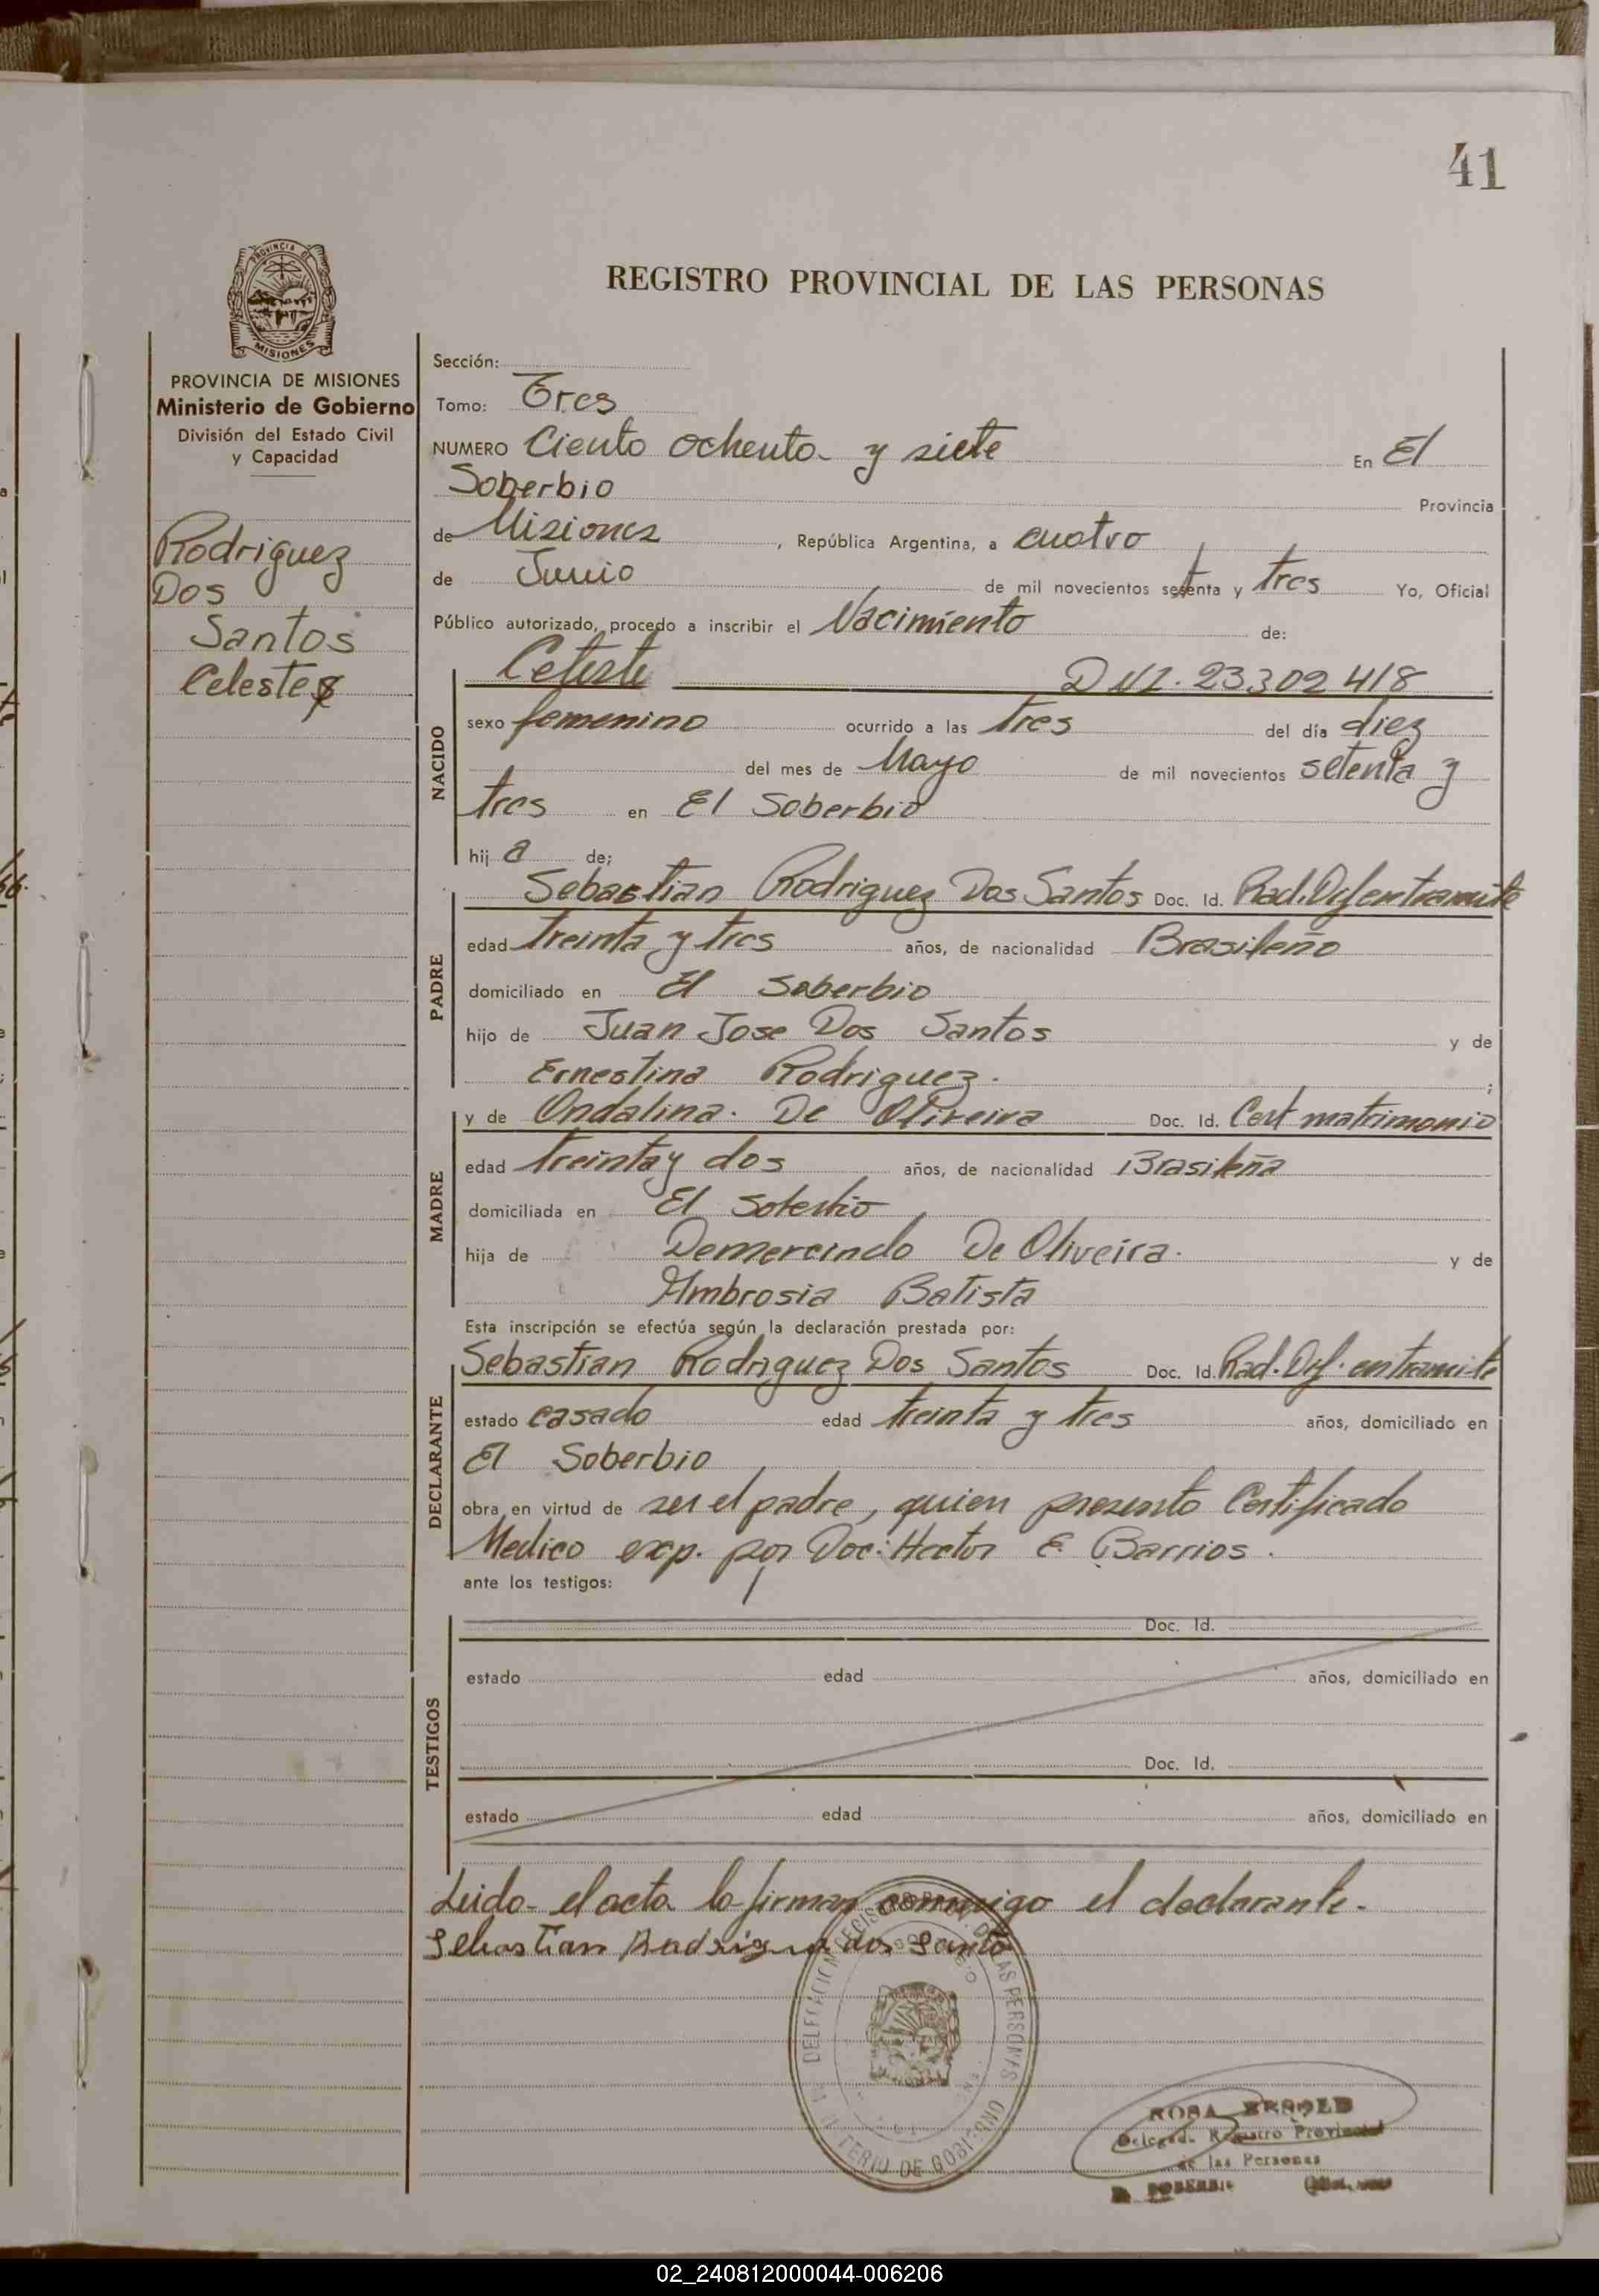 41
PROVINCIA DE
MISIONES
REGISTRO PROVINCIAL DE LAS PERSONAS
PROVINCIA DE MISIONES
Ministerio de Gobierno
División del Estado Civil
y Capacidad
Rodriguez
Dos
Santos
Celeste
Sección:
Tomo: Tres
NUMERO Ciento ochenta y siete En El
Soberbio
Provincia
de Misiones, República Argentina, a cuatro
de Junio de mil novecientos setenta y tres Yo, Oficial
Público autorizado, procedo a inscribir el Nacimiento de:
NACIDO
Celeste DNI. 23302418
sexo femenino ocurrido a las tres del día diez
del mes de Mayo de mil novecientos setenta y
tres en El Soberbio
hij a de;
PADRE
Sebastian Rodriguez Dos Santos Doc. Id. Rad. Def en tramite
edad treinta y tres años, de nacionalidad Brasileño
domiciliado en El Soberbio
hijo de Juan Jose Dos Santos y de
Ernestina Rodriguez. ;
MADRE
y de Ondalina. De Oliveira Doc. Id. Cert matrimonio
edad treinta y dos años, de nacionalidad Brasileña
domiciliada en El Soberbio
hija de Demercindo De Oliveira. y de
Ambrosia Batista
Esta inscripción se efectúa según la declaración prestada por:
DECLARANTE
Sebastian Rodriguez Dos Santos Doc. Id. Rad. Def. en tramite
estado casado edad treinta y tres años, domiciliado en
El Soberbio
obra en virtud de ser el padre, quien presento Certificado
Medico exp. por Doc: Hector E. Barrios.
ante los testigos:
TESTIGOS
Doc. Id.
estado edad años, domiciliado en
Doc. Id.
estado edad años, domiciliado en
Leido el acta la firman conmigo el declarante.
Sebastian Rodrigue dos Santo
DELEGACION REGISTRO DE LAS PERSONAS
DE GOBIERNO
ROSA
Delegada Registro Provincial
de las Personas
SOBERBIO
02_240812000044-006206